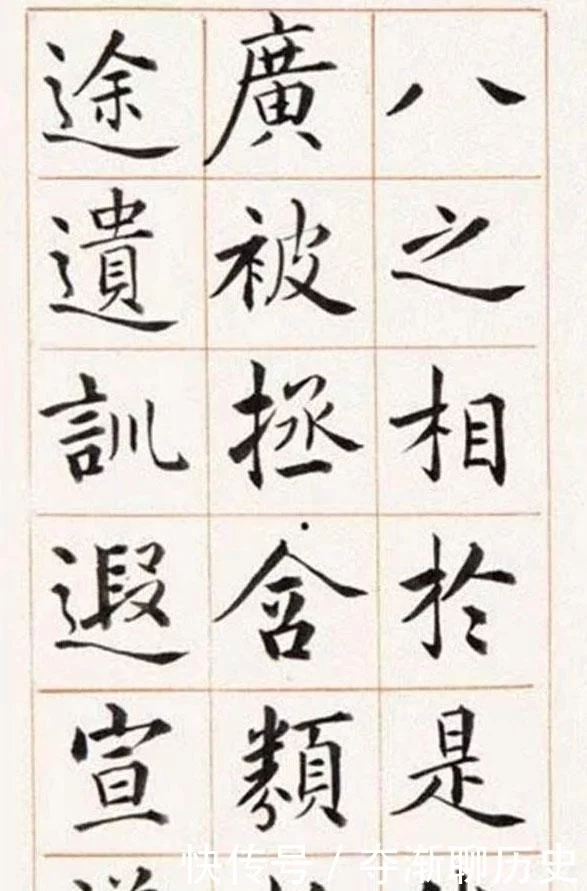 八之相於是
廣被拯含類
途遺訓遐宣
快传号 / 渐聊历史